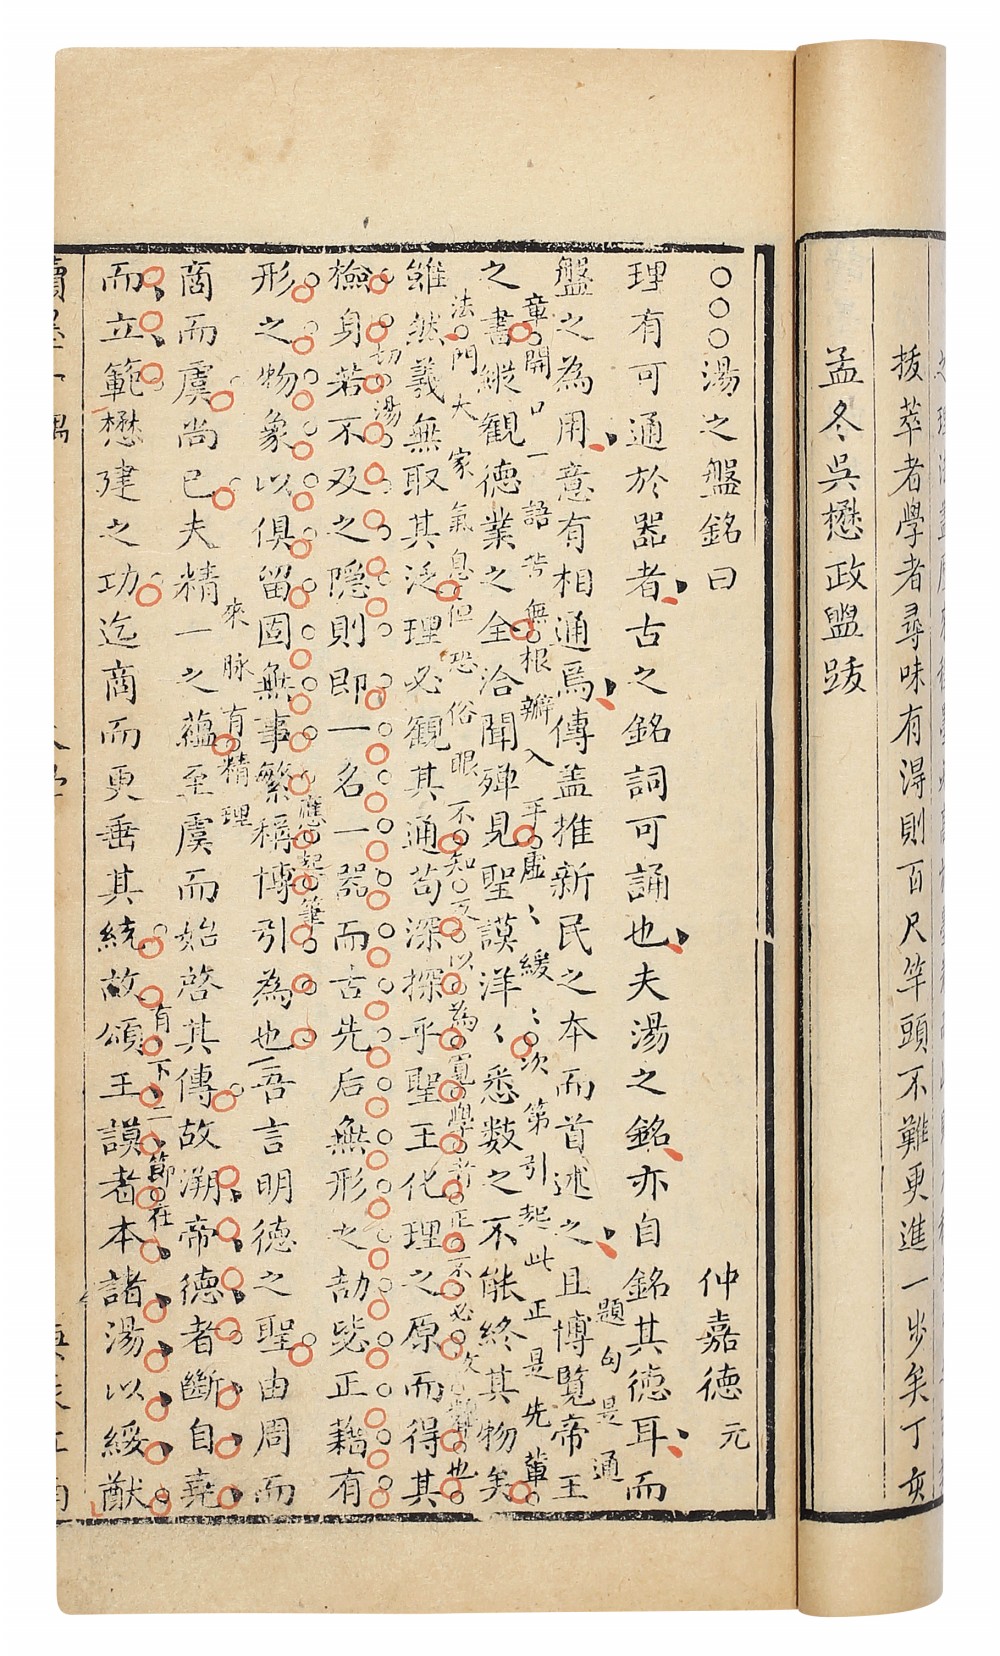 拔萃者學者尋味有得則百尺竿頭不難更進一步矣丁亥
孟冬吳懋政盥跋
湯之盤銘曰 仲嘉德 元
理有可通於器者古之銘詞可誦也夫湯之銘亦自銘其德耳而
題句是通
盤之為用意有相通焉傳盖推新民之本而首述之且博覽帝王
章開口一語苦無根瓣入手虛〻緩〻次第引起此正是先輩
之書縱觀德業之全洽聞殫見聖謨洋〻悉數之不能終其物矣
法門大家氣息但恐俗眼不知反以為寬學者正不必也
雖然義無取其泛理必觀其通苟深探乎聖王化理之原而得其
切湯
檢身若不及之隱則即一名一器而古先后無形之劼毖正藉有
應起筆
形之物象以俱留固無事繁稱博引為也吾言明德之聖由周而
來脉有精理
商而虞尚已夫精一之蘊至虞而始啓其傳故溯帝德者斷自堯
有下二節在
而立範懋建之功迄商而更垂其統故頌王謨者本諸湯以綏猷